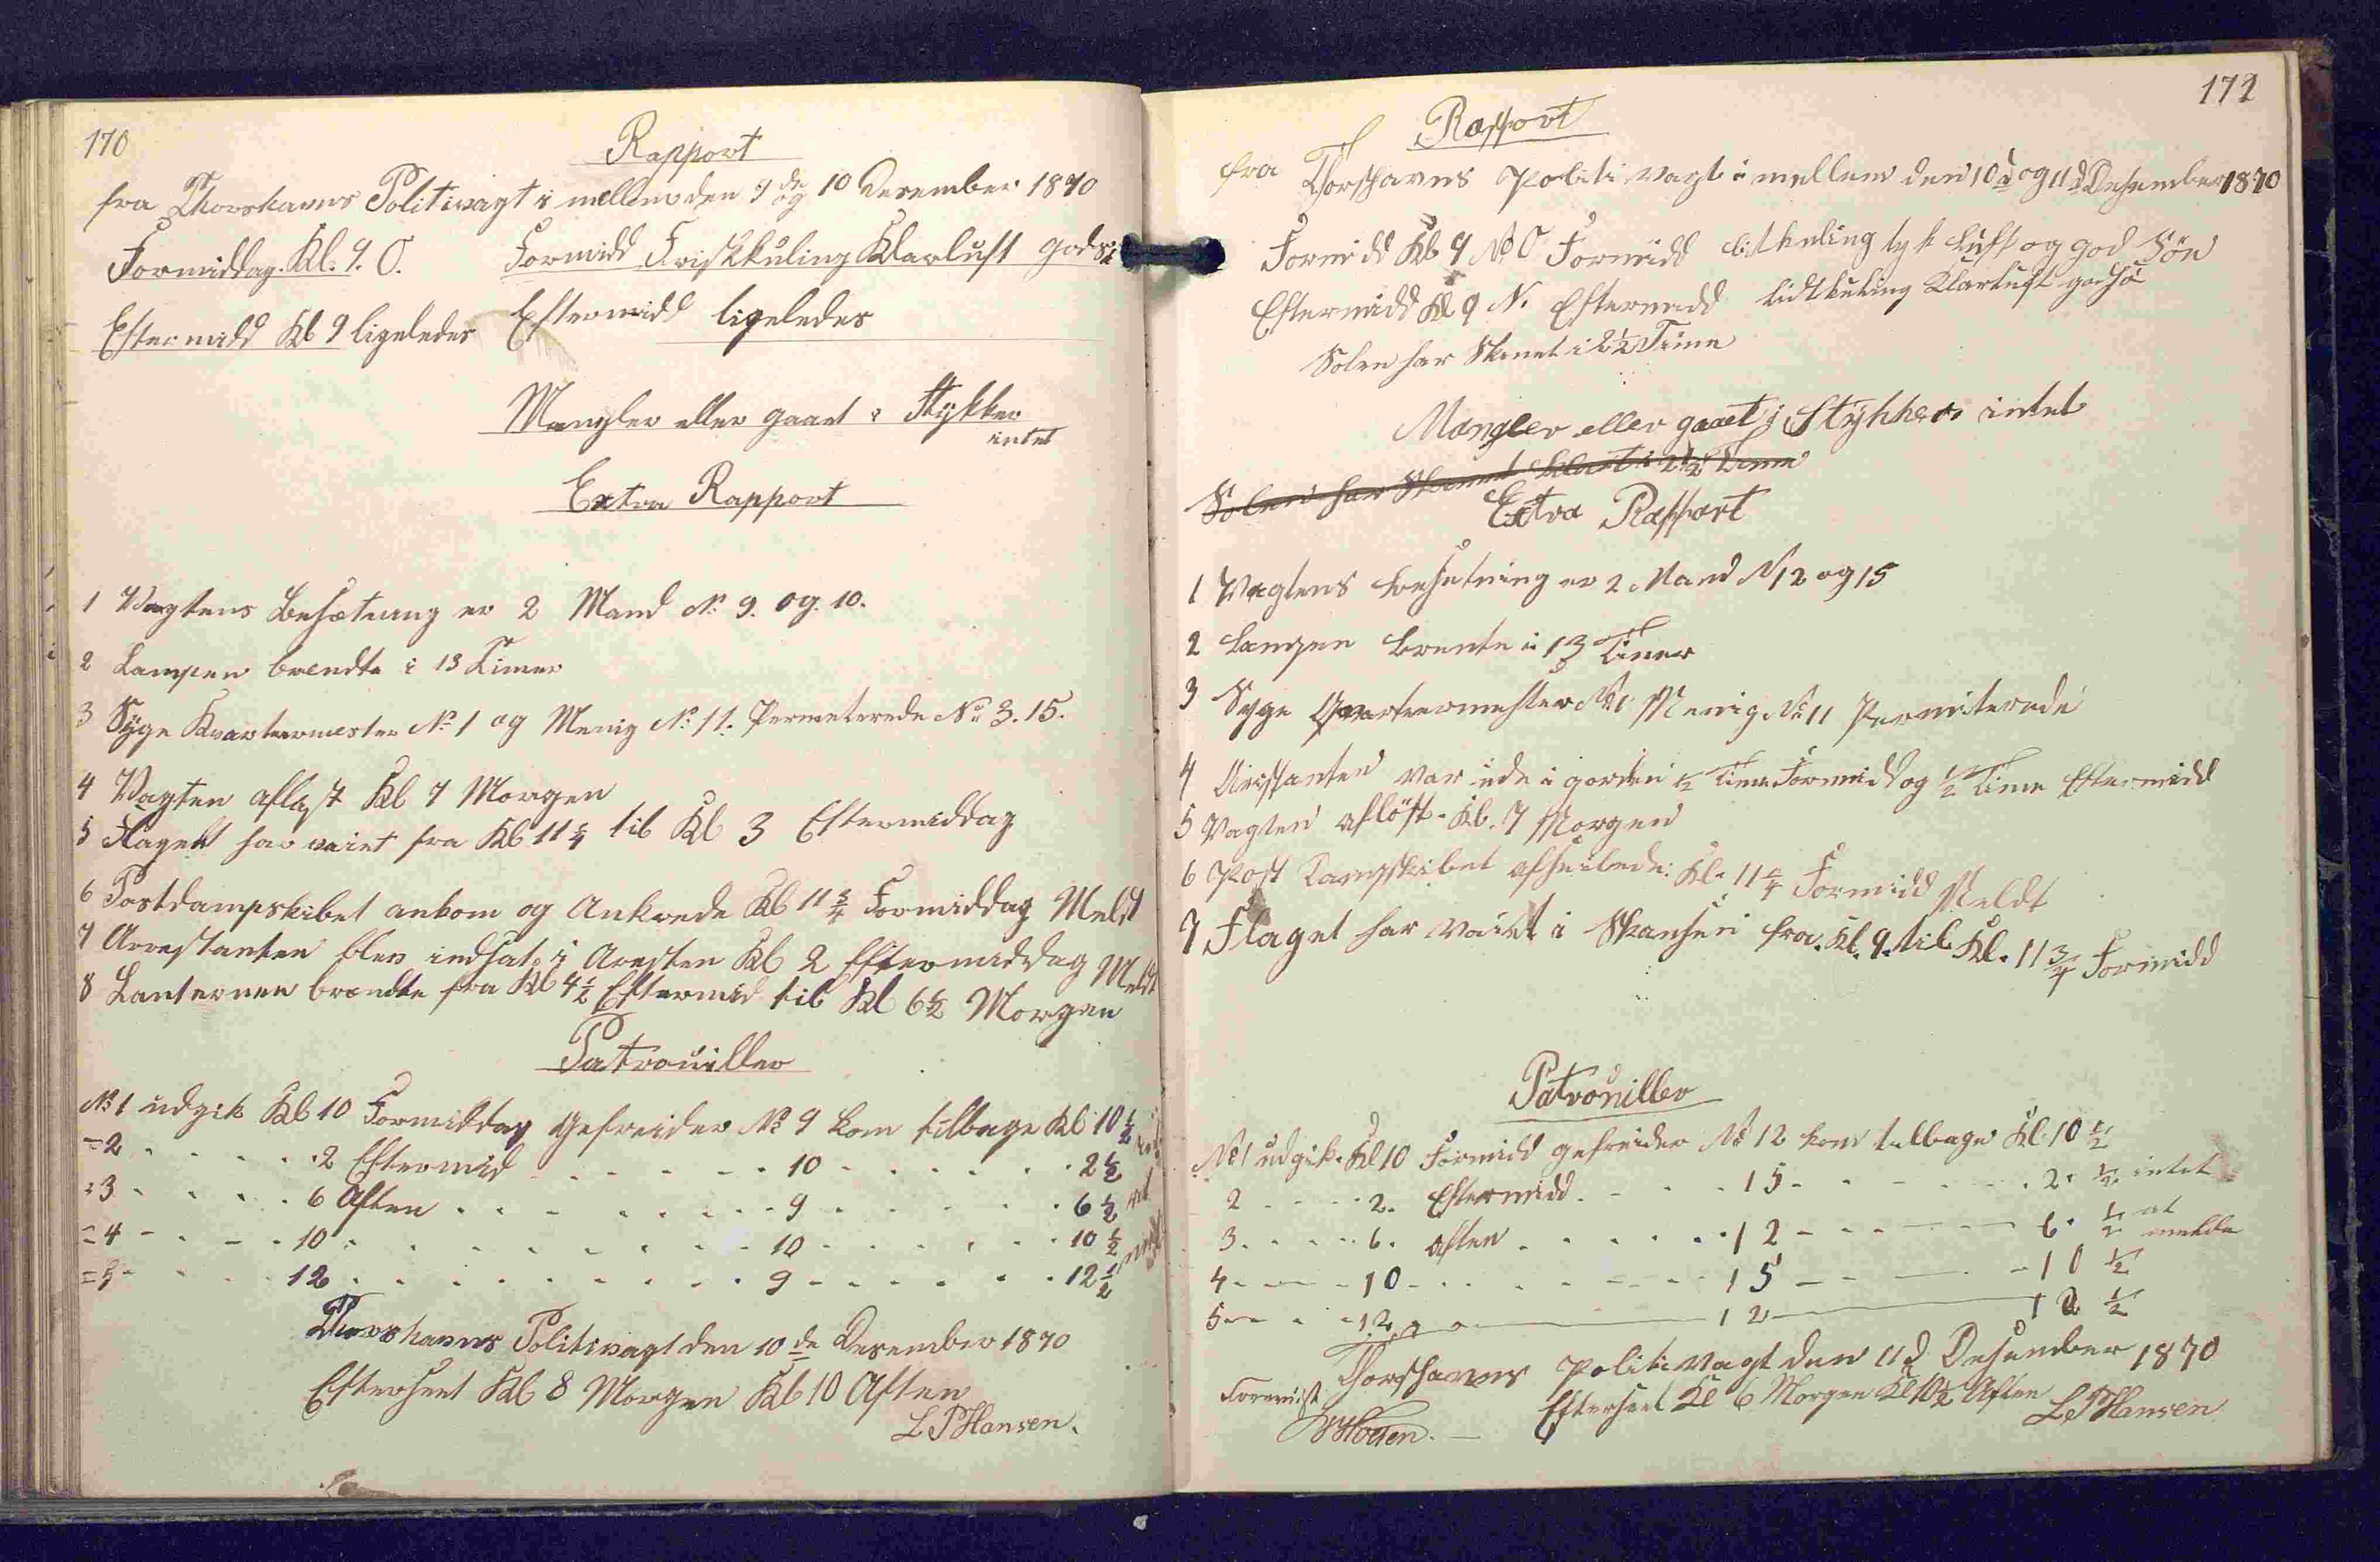 170
Rapport
fra Thorshavns Politivagt i mellem den 9 de og 10 Desember 1870
Formiddag. Kl. 9. O. Formidd Friskkuling Klarluft god Sö
Eftermidd Kl 9 ligeledes Eftermidd ligeledes
Mangler eller gaaet i Stykker
intet
Extra Rapport
1 Vagtens Besætning er 2 Mand No 9. og. 10.
2 Lampen brendte i 13 Timer
3 Syge Kvartermester No 1 og Menig No 11. Permeterede No 3. 15.
4 Vagten aflöst Kl 7 Morgen
5 Flaget har vaiet fra Kl 11 1/4 til Kl 3 Eftermiddag
6 Postdampskibet ankom og Ankrede Kl 11 3/4 Formiddag Meldt
7 Arrestanten blev indsat i Aresten Kl 2 Eftermiddag Meldt
8 Lanternen brændte fra Kl 4 1/2 Eftermid til Kl 6 1/2 Morgen
Patrouiller
No 1 udgik Kl 10 Formiddag Gefreider No 9 kom tilbage Kl 10 1/2
= 2 . . . . 2 Eftermid . . . . . 10 . . . . . . 2 1/2
= 3 . . . . 6 Aften . . . . . . . 9 . . . . . . 6 1/2
= 4 - . - . 10 . . . . . . . . . 10 . . . . . . 10 1/2
= 5 - . . . 12 . . . . . . . . . 9 - . . . . . 12 1/2
Thorshavns Politivagt den 10 de Desember 1870
Efterseet Kl 8 Morgen Kl 10 Aften
L P Hansen.
171
Rapport
fra Thorshavns Politivagt i mellem den 10 d og 11 d Desember 1870
Formidd Kl 9 N.O Formidd litkuling tyk luft og god Sön
Eftermidd Kl 9 N. Eftermidd lidtkuling Klarluft god Sö
Solen har Skinet i 2 1/2 Time
Mangler eller gaaet i Stykker intet
Solen har Skinnet klart i 2 1/2 Time
Extra Rapport
1 Vagtens besetning er 2 Mand N 12 og 15
2 Lampen brente i 13 Timer
3 Syge Qvartermester No 1 Menig No 11 Permiterede
4 Aristanten var ude i gorden 1/2 Time Formidd og 1/2 Time Eftermidd
5 Vagten aflöst. Kl. 7 Morgen
6 Post Dampskibet afseilede Kl. 11 1/4 Formidd Meldt
7 Flaget har vaiet i Skansen fra. Kl. 9. til Kl. 11 3/4 Formidd
Patrouiller
No 1 udgik. Kl 10 Formidd gefreider No 12 kom tilbage Kl. 10 1/2
2 . . . . 2. Eftermidd. . . . 15 - . - - . . 2. 1/2 intet
3 . . . . 6. aften . . . . . 12 - - - - - 6. 1/2 at
melde
4 - - - - 10 - . . . - - - 15 - - - - 10 1/2
5 - - . . 12 - - 12 - 12 1/2
Thorshavns Politivagt den 11 d Desember 1870
Efterseet Kl 6 Morgen Kl 10 1/2 Aften
L P Hansen